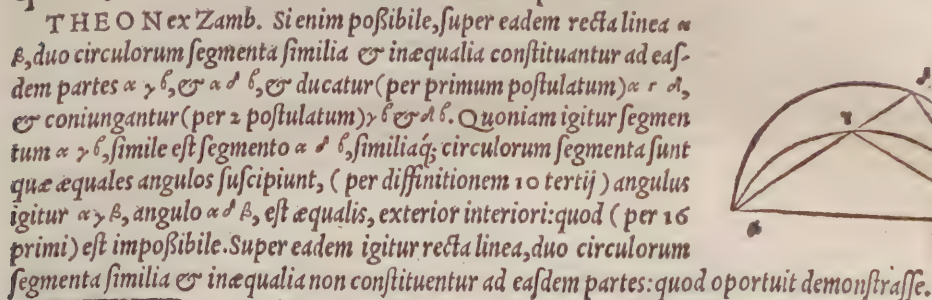 THEON ex Zamb. Si enim poßibile, ſuper eadem recta linea α
β, duo circulorum ſegmenta ſimilia & inæqualia conſtituantur ad eaſ-
dem partes α γ ϐ, & α δ ϐ, & ducatur (per primum poſtulatum) α γ δ,
& coniungantur (per 2 poſtulatum) γ ϐ & δ ϐ. Quoniam igitur ſegmen
tum α γ ϐ, ſimile eſt ſegmento α δ ϐ, ſimiliaq́; circulorum ſegmenta ſunt
quæ æquales angulos ſuſcipiunt, ( per diffinitionem 10 tertij ) angulus
igitur α γ β, angulo α δ β, eſt æqualis, exterior interiori: quod ( per 16
primi) eſt impoßibile. Super eadem igitur recta linea, duo circulorum
ſegmenta ſimilia & inæqualia non conſtituentur ad eaſdem partes: quod oportuit demonſtraſſe.
δ
γ
α